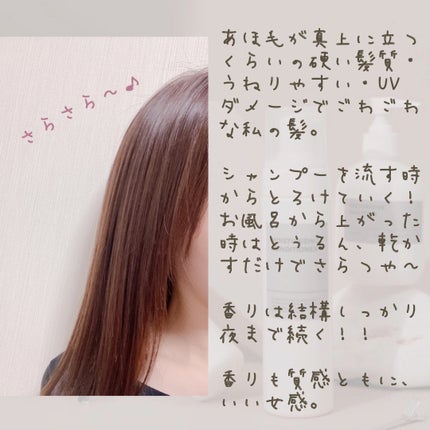 さらさら〜♪
あほ毛が真上に立つ
くらいの硬い髪質・
うねりやすい・UV
ダメージでごわごわ
な私の髪。
シャンプーを流す時
からとろけていく！
お風呂から上がった
時はとぅるん、乾か
すだけでさらつや〜
香りは結構しっかり
夜まで続く！！
香りも質感ともに、
いい女感。